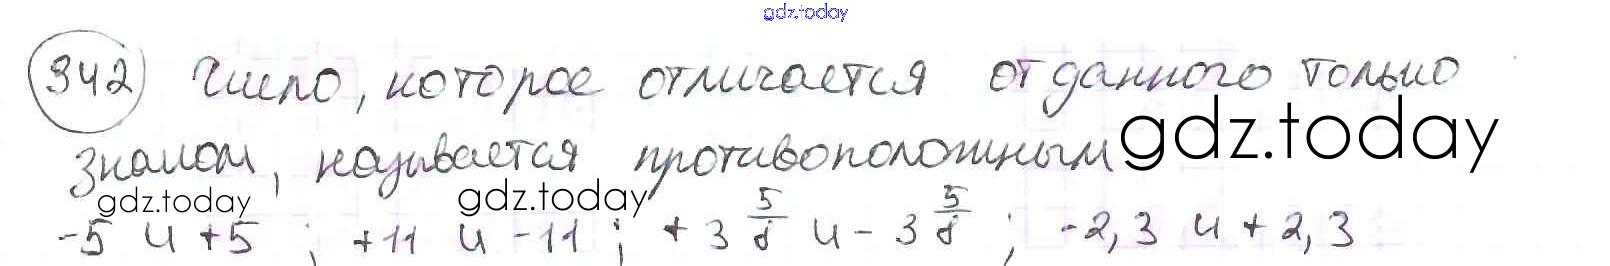 gdz.today
342 Число, которое отличается от данного только
gdz.today
знаком, называется противоположным
gdz.today gdz.today
-5 и +5 ; +11 и -11 ; +3 5/8 и -3 5/8 ; -2,3 и +2,3